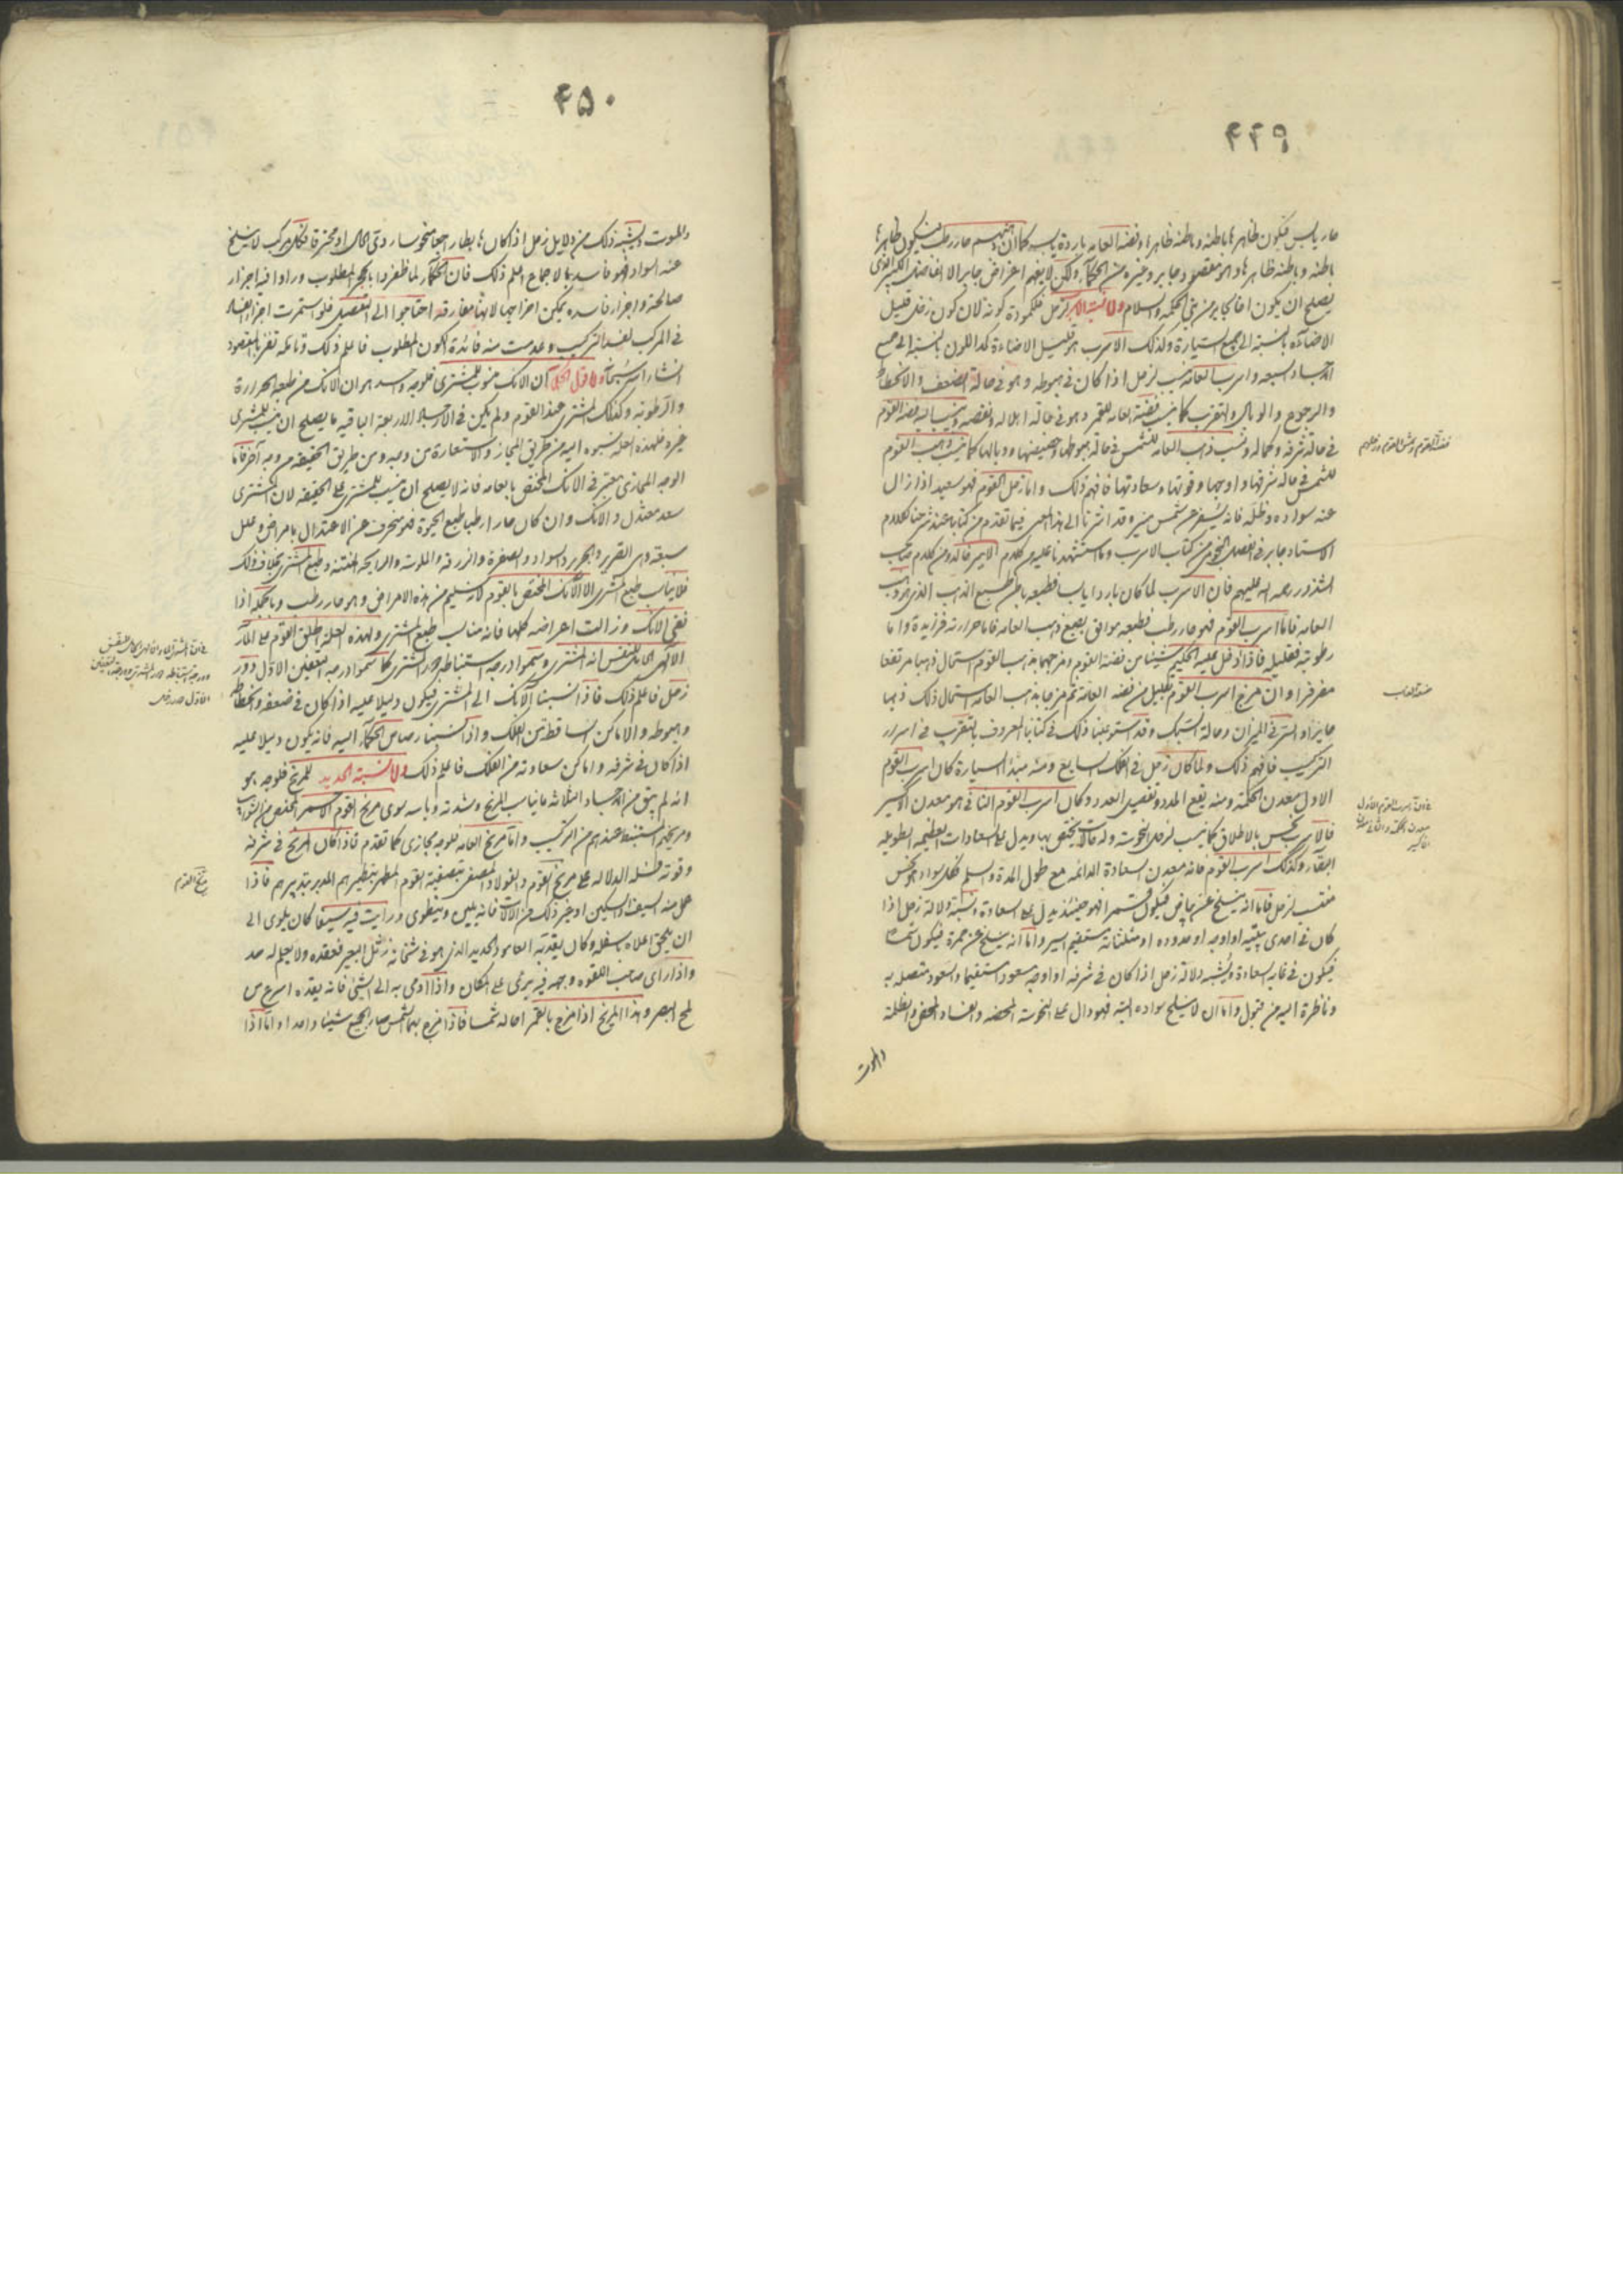 ۴۴۹
حار يابس فيكون ظاهرها باطنه وباطنه ظاهرا وفضة العامه باردة يابسه كما ان فضتهم حار رطب فيكون ظاهرها
باطنه وباطنه ظاهرها وهو مقصود جابر وغيره من الحكماء ولكن لا يفهم اغراض جابر الا
يصلح ان يكون اخا لجابر من بني الحكمه والسلام واما نسبة الاسرب لزحل فلكمودة لونه لان لون زحل قليل
الاضاءة بالنسبة الى جميع السيارة وكذلك الاسرب هو قليل الاضاءة كمد اللون بالنسبة الى جميع
الاجساد السبعه واسرب العامه ينسب لزحل اذا كان في هبوطه وهو في حالة الضعف والانحطاط
والرجوع والوبال والتغرب كما ينسب فضة العامه للقمر وهو في حالة اهلاله ونقصه وينسب اليه فضة القوم
في حالة شرفه وكماله وينسب ذهب العامه للشمس في حالة هبوطها وحضيضها ووبالها كما ينسب ذهب القوم
للشمس في حالة شرفها واوجها وقوتها وسعادتها فافهم ذلك واما زحل القوم فهو سعيد اذا زال
عنه سواده وظله فانه يسفر عن شمس منير وقد اشرنا الى هذا المعنى فيما تقدم من كتابنا عند شرحنا لكلام
الاستاد جابر في الفصل من كتاب الاسرب وما استشهدنا عليه من كلام الامير خالد ومن كلام صاحب
الشذور رحمه الله عليهم فان الاسرب لما كان باردا يابسا فطبعه باطن طبع الذهب الذي هو ذهب
العامه فاما اسرب القوم فهو حار رطب فطبعه موافق بطبع ذهب العامه فاما حرارته فزايدة واما
رطوبته فقليله فاذا ادخل عليه الحكيم شيئا من فضة القوم ومزجهما بذهب القوم استحال ذهبا مرتفعا
وان مزج اسرب القوم بقليل من فضه العامه ثم مزجها بذهب العامه استحال ذلك ذهبا
جايزا في الميزان وحالة السبك وقد استوعبنا ذلك في كتابنا المعروف بالتقريب في اسرار
التركيب فافهم ذلك ولما كان زحل في الفلك السابع ومنه مبدأ السيارة كان اسرب القوم
الاول معدن الحكمة ومنه يقع المدد وتفصيل العدد وكان اسرب القوم الثاني هو معدن الاكسير
فالاسرب نحس بالاطلاق كما ينسب لزحل النحوسة وله حالات يختص بها ويدل على السعادات العظيمه الطويله
البقاء وكذلك اسرب القوم فانه معدن السعادة الدائمه مع طول المدة والسلم فكل سواد هو نحس
منتسب لزحل فاما انه ينسلخ عن بياض فيكون قمرا فهو حينئذ يدل على السعادة ويشبه دلالة زحل اذا
كان في احدى بيتيه او اوجه او حدوده او مثلثاته مستقيم السير واما انه ينسلخ عن حمرة فيكون شمسا
فيكون في غايه السعادة ويشبه دلالة زحل اذا كان في شرفه او اوجه مسعود استقيما والسعود متصله به
وناظرة اليه من قبول واما ان لا ينسلخ سواده البتة فهو دال على النحوسة المحضه والفساد المحض والظلمة
والموت
فضة القوم
اسرب القوم الاول
معدن الحكمة والثاني معدن
الاكسير
۴۵۰
والموت ويشبه ذلك من دلايل زحل اذا كان هابطا راجعا منحوسا ردئ الحال او محترقا فكل مركب لا ينسلخ
عنه السواد فهو فاسد بالاجماع اعلم ذلك فان الحكماء لما ظفروا بالحجر المطلوب ورأوا فيه اجزاء
صالحة واجزاء فاسده يمكن اخراجها لانها مفارقه احتاجوا الى التفصيل فلو استمرت اجزاء الفساد
في المركب لفسد التركيب وعدمت منه فائدة الكون المطلوب فاعلم ذلك وتأمله تفز بالمقصود
انشاء الله سبحانه واما قول الحكماء ان الانك منسوب للمشتري فلوجه واحد هو ان الانك من طبعه الحرارة
والرطوبه وكذلك المشتري عند القوم ولم يكن في الاجساد الاربعة الباقيه ما يصلح ان ينسب للمشتري
غيره فلهذه العله نسبوه اليه من طريق المجاز والاستعارة من وجه ومن طريق الحقيقه من وجه آخر فاما
الوجه المجازي معتبر في الانك المختص بالعامه فانه لا يصلح ان ينسب للمشتري على الحقيقه لان المشتري
سعد معتدل والانك وان كان حارا رطبا طبع الحيوة فهو منحرف عن الاعتدال بامراض وعلل
سبعة وهي الصرير والجرد والسواد والصفرة والزرقه واللوثه والرايحه المنتنه وطبع المشتري بخلاف ذلك
فلا يناسب طبع المشتري الا الانك المختص بالقوم لانه سليم من هذه الامراض وهو حار رطب وبالجمله اذا
نقي الانك وزالت اعراضه كلها فانه مناسب طبع المشتري ولهذه العلة اطلق القوم على الماء
الالهي انه المشتري وسموا درجه استنباطه دور المشتري كما سموا درجه التعفين الاول دور
زحل فاعلم ذلك فاذا نسبنا الانك الى المشتري فيكون دليلا عليه اذا كان في ضعفه وانحطاطه
وهبوطه والاماكن الساقطة من الفلك واذا نسبنا رصاص الحكماء اليه فانه يكون دليلا عليه
اذا كان في شرفه واماكن سعادته من الفلك فاعلم ذلك واما نسبة الحديد للمريخ فلوجه وهو
انه لم يبق من الاجساد الثلاثه ما يناسب المريخ وشدته وباسه سوى مريخ القوم الاحمر المختص
ومريخهم المستنبط عندهم من التركيب واما مريخ العامه فلوجه مجازي كما تقدم فاذا كان المريخ في شرفه
وقوته فله الدلاله على مريخ القوم والفولاد المصفى بتصفية القوم المطهر بتطهيرهم المدبر بتدبيرهم فاذا
عمل منه السيف والسكين او غير ذلك من الالات فانه يلين وينطوي ورأيت فيه سيفا كان يلوى الى
ان يلحق اعلاه باسفله وكان يقد به العامود الحديد الذي هو في ثخانة رجل البعير فيقده ولا يعلم له صد
واذا رأى صاحب اللقوه وجهه فيه برئ على المكان واذا اومى به الى الشئ فانه يقده اسرع من
لمح البصر وهذا المريخ اذا مزج بالقمر احاله شمسا فاذا مزج بهما الشمس صار الجميع شيئا واحدا واما اذا
مريخ القوم